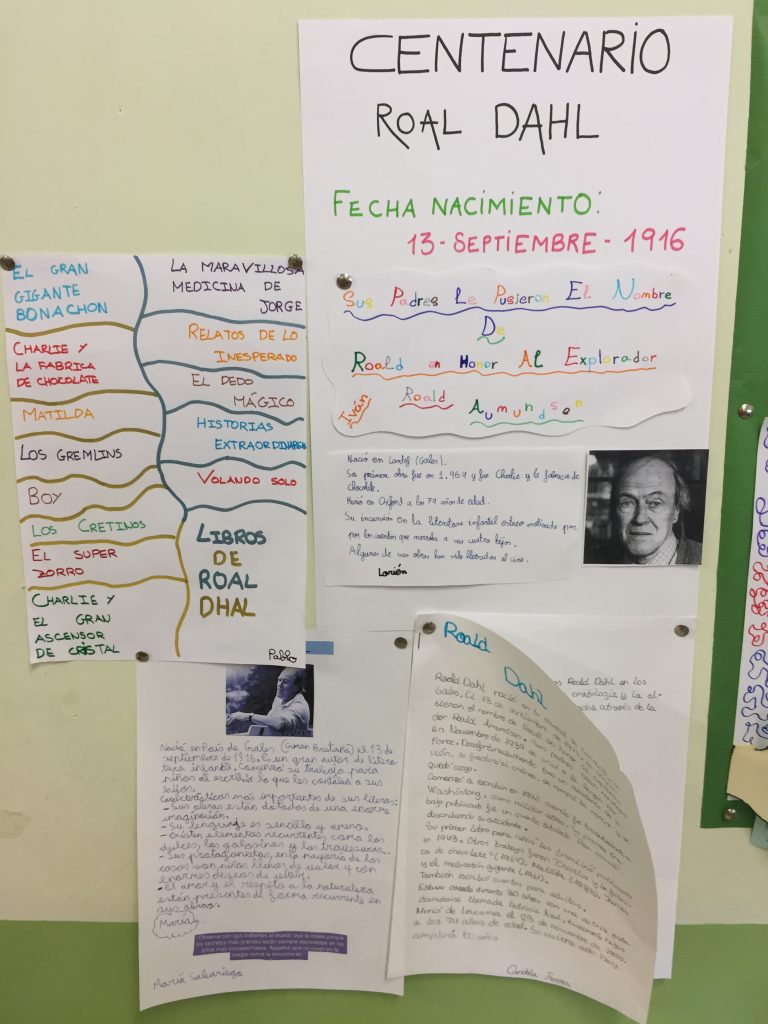 CENTENARIO
ROAL DAHL
FECHA NACIMIENTO:
13-SEPTIEMBRE-1916
Sus Padres Le Pusieron El Nombre
De
Roald en Honor Al Explorador
Iván
Roald
Aumundsen
Nació en (Gales).
Su primera obra fue en 1.964 y fue Charlie y la fabrica de
chocolate.
Murió en Oxford a los 74 años de edad.
Su incursion en la literatura infantil estuvo motivada por
por los cuentos que narraba a sus cuatro hijos.
Algunas de sus obras han sido llevadas al cine.
Lorién
EL GRAN
GIGANTE
BONACHON
CHARLIE Y
LA FABRICA
DE CHOCOLATE
MATILDA
LOS GREMLINS
BOY
LOS CRETINOS
EL SUPER
ZORRO
CHARLIE Y
EL GRAN
ASCENSOR
DE CRISTAL
LA MARAVILLOSA
MEDICINA DE
JORGE
RELATOS DE LO
INESPERADO
EL DEDO
MÁGICO
HISTORIAS
EXTRAORDINARIAS
VOLANDO SOLO
LIBROS
DE
ROAL
DHAL
Pablo
Nació en País de Gales (Gran Bretaña) el 13 de
septiembre de 1916. Es un gran autor de litera-
tura infantil. Comenzó su trabajo para
niños al escribir lo que les contaba a sus
hijos.
Características más importantes de sus libros:
- Sus obras están dotadas de una enorme
imaginación.
- Su lenguaje es sencillo y ameno.
- Existen elementos recurrentes como los
dulces, las golosinas y las travesuras...
- Sus protagonistas, en la mayoría de los
casos son niños llenos de valor y con
enormes deseos de vivir.
- El amor y el respeto a la naturaleza
están presentes de forma recurrente en
sus obras.
(María)
"Observa con ojos brillantes el mundo que te rodea porque
los secretos más grandes están siempre escondidos en los
sitios más insospechados. Aquellos que no creen en la
magia nunca la encontrarán."
María Salvariego
Roald
Dahl
Roald Dahl nació en
Gales, El 13 de septiembre de
el nombre de Roald en honor
der Roald Amundsen.
en Noviembre de 1939 se
Comenzó a escribir en 1942, cuando
Washintong, como militar
bajo publicado fue un cuento
describiendo su accidente.
Su primer libro para niños
en 1943. Otros trabajos fueron "Charlie y la fabri-
ca de chocolate" (1964), Matilda (1988), James
y el melocotón gigante (1961).
También escribió cuentos para adultos.
Estuvo casado durante 30 años con una actriz esta-
dounidense llamada Patricia Neal.
Murió de leucemia el 23 de noviembre de 1990
a los 74 años de edad. Si viviera aún hoy
cumpliría 100 años
Candela
Roald Dahl en los
y la al-
através de la